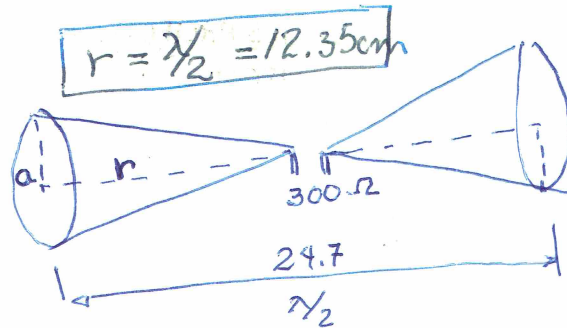 r = λ/2 = 12.35cm
a
r
300Ω
24.7
λ/2